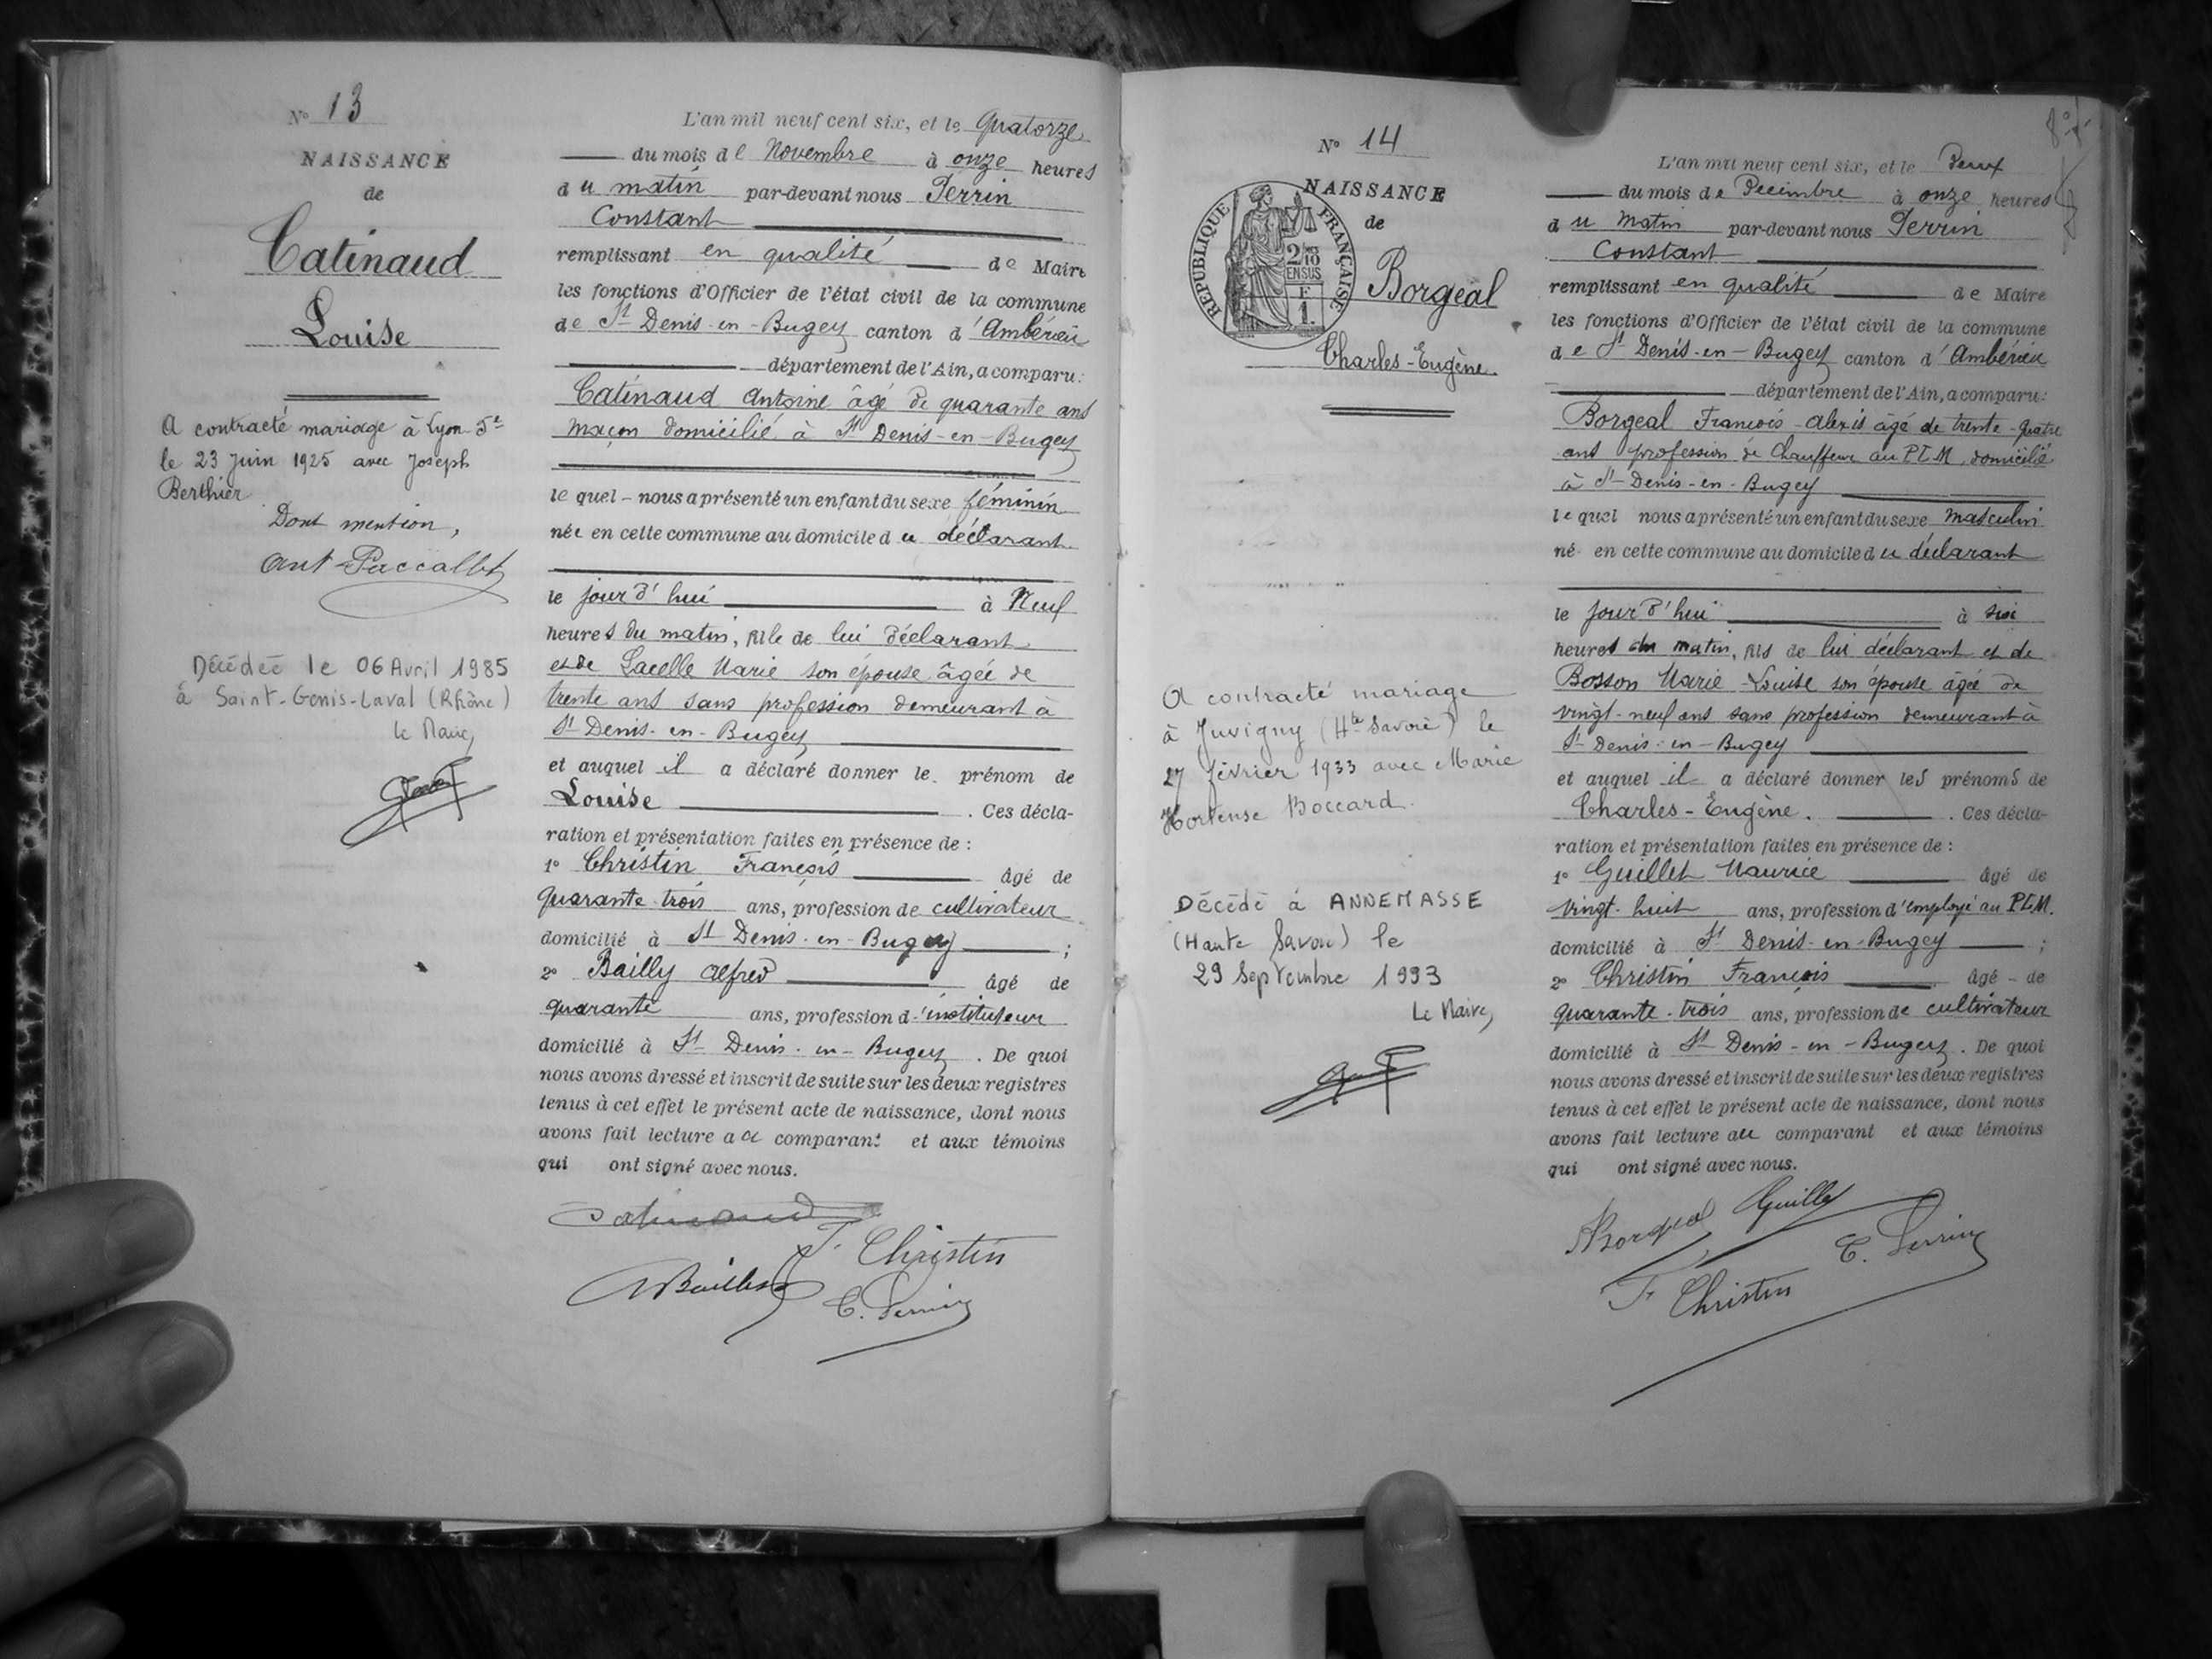 N° 13
NAISSANCE
de
Catinaud
Louise
A contracté mariage à Lyon 5e
le 23 Juin 1925 avec Joseph
Berthier
Dont mention,
Décédée le 06 Avril 1985
à Saint-Genis-Laval (Rhône)
Le Maire,
L'an mil neuf cent six, et le Quatorze
du mois de Novembre à onze heures
du matin par-devant nous Perrin
Constant
remplissant en qualité de Maire
les fonctions d'Officier de l'état civil de la commune
de St Denis-en-Bugey canton d'Ambérieu
département de l'Ain, a comparu:
Catinaud Antoine âgé de quarante ans
maçon domicilié à St Denis-en-Bugey
lequel - nous a présenté un enfant du sexe féminin
née en cette commune au domicile du déclarant
le jour d'hui à Neuf
heures du matin, fille de lui déclarant
et de Lacelle Marie son épouse âgée de
trente ans sans profession demeurant à
St Denis-en-Bugey
et auquel il a déclaré donner le prénom de
Louise . Ces décla-
ration et présentation faites en présence de :
1° Christin François âgé de
quarante trois ans, profession de cultivateur
domicilié à St Denis-en-Bugey ;
2° Bailly Alfred âgé de
quarante ans, profession d'instituteur
domicilié à St Denis-en-Bugey . De quoi
nous avons dressé et inscrit de suite sur les deux registres
tenus à cet effet le présent acte de naissance, dont nous
avons fait lecture au comparant et aux témoins
qui ont signé avec nous.
Catinaud
F. Christin
ABailly
C. Perrin
N° 14
NAISSANCE
de
RÉPUBLIQUE FRANÇAISE
2/10
EN SUS
F
1.
Borgeal
Charles-Eugène
A contracté mariage
à Juvigny (Hte Savoie) le
27 février 1933 avec Marie
Hortense Boccard.
Décédé à ANNEMASSE
(Haute Savoie) le
29 Septembre 1993
Le Maire,
L'an mil neuf cent six, et le Deux
du mois de Décembre à onze heures
du Matin par-devant nous Perrin
Constant
remplissant en qualité de Maire
les fonctions d'Officier de l'état civil de la commune
de St Denis-en-Bugey canton d'Ambérieu
département de l'Ain, a comparu:
Borgeal François-Alexis âgé de trente-quatre
ans profession de Chauffeur au PLM, domicilié
à St-Denis-en-Bugey
lequel nous a présenté un enfant du sexe masculin
né en cette commune au domicile du déclarant
le jour d'hui à six
heures du matin, fils de lui déclarant et de
Bosson Marie-Louise son épouse âgée de
vingt-neuf ans sans profession demeurant à
St Denis-en-Bugey
et auquel il a déclaré donner les prénoms de
Charles-Eugène. . Ces décla-
ration et présentation faites en présence de :
1° Guillet Maurice âgé de
vingt-huit ans, profession d'employé au PLM.
domicilié à St Denis-en-Bugey ;
2° Christin François âgé - de
quarante-trois ans, profession de cultivateur
domicilié à St Denis-en-Bugey. De quoi
nous avons dressé et inscrit de suite sur les deux registres
tenus à cet effet le présent acte de naissance, dont nous
avons fait lecture au comparant et aux témoins
qui ont signé avec nous.
Borgeal Guillet
C. Perrin
F. Christin